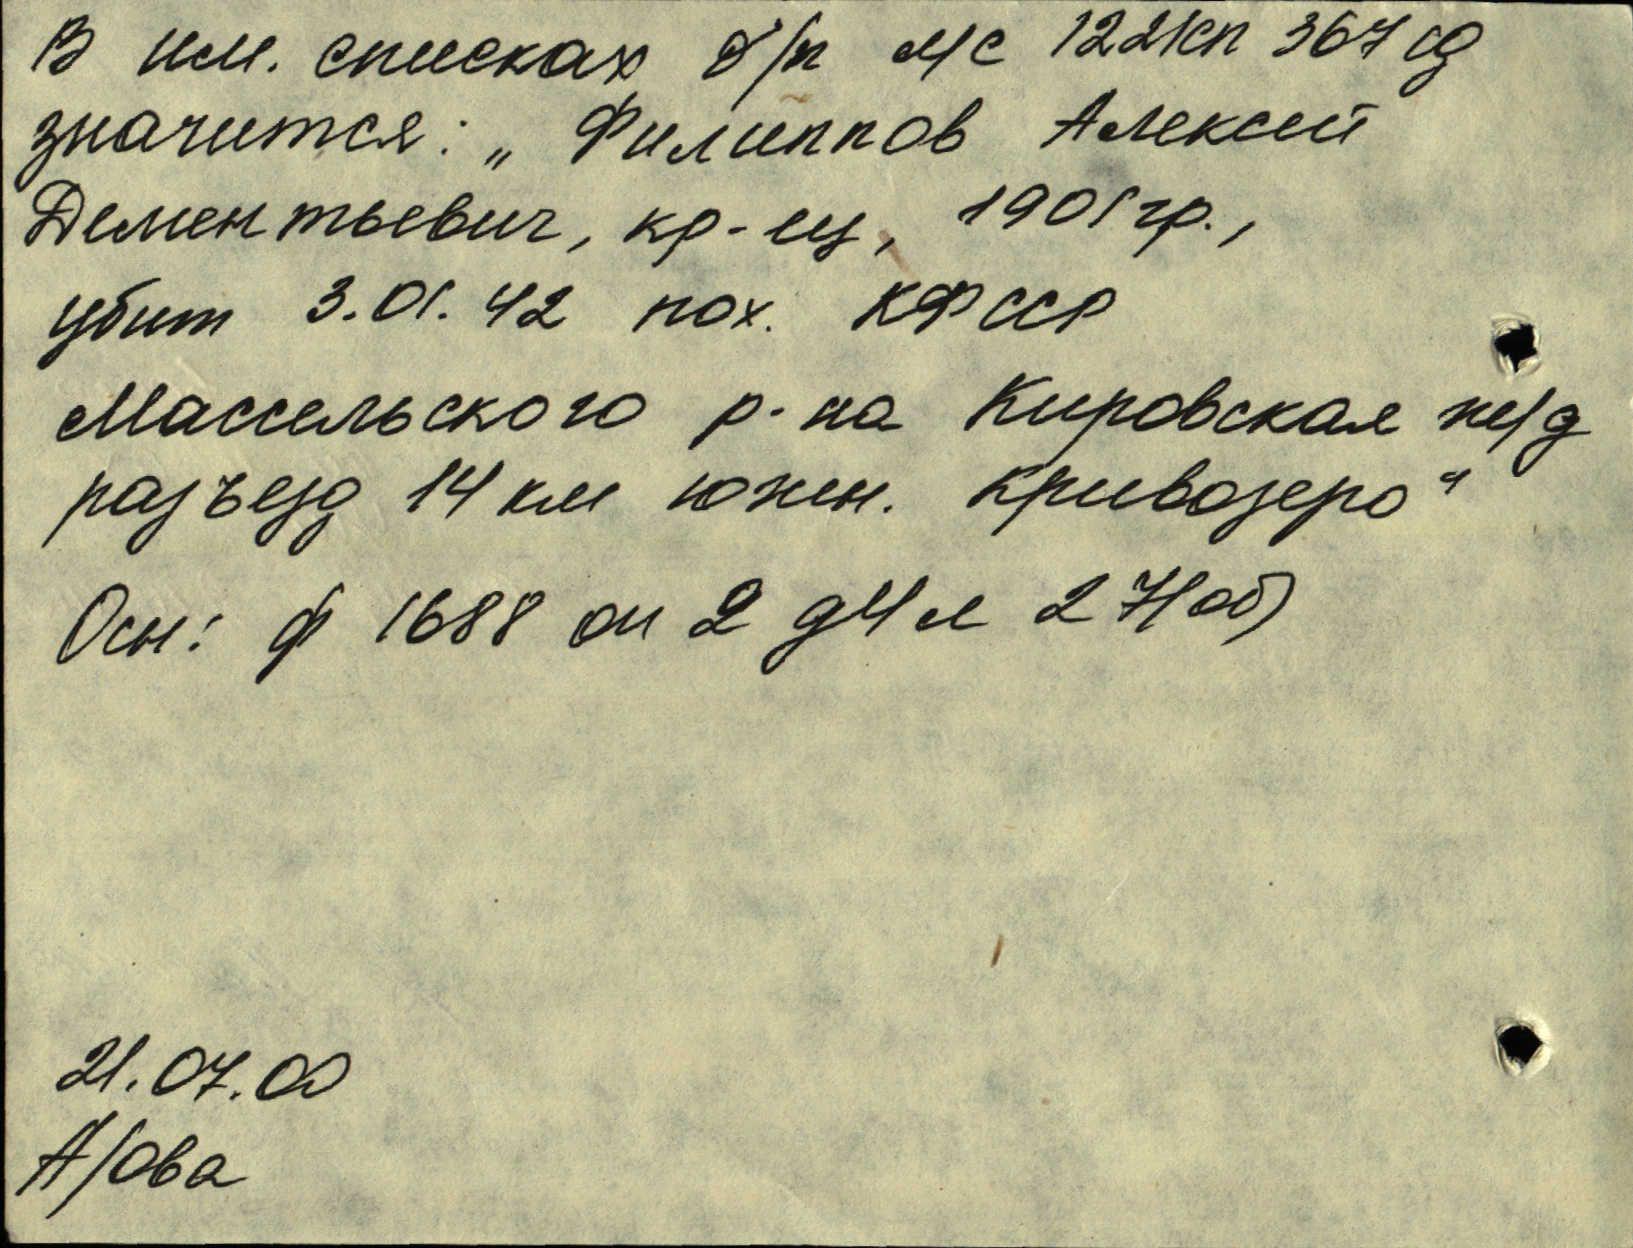 В им. списках б/п МС 1221сп 367 сд
значится: „Филиппов Алексей
Дементьевич, кр-ец, 1901 гр.,
убит 3.01.42 пох. КФССР
Массельского р-на Кировская ж/д
разъезд 14 км южн. Кривозеро“
Осн: ф 1688 оп 2 д 4 л 27(об)
21.07.00
А/ова